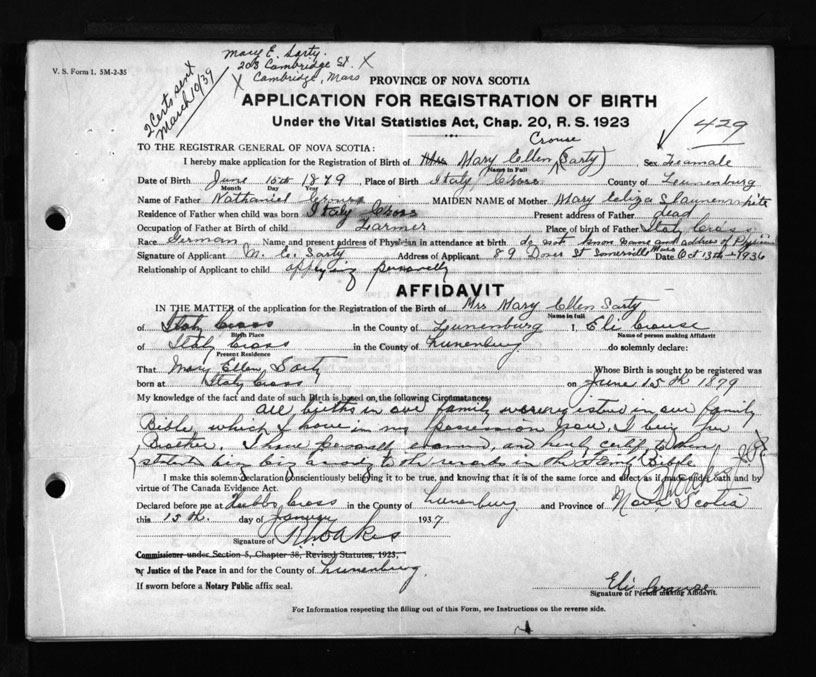 V. S. Form 1. 5M-2-35
Mary E. Sarty.
203 Cambridge St. X
X Cambridge, Mass
2 Certs. sent
March 10/39
PROVINCE OF NOVA SCOTIA
APPLICATION FOR REGISTRATION OF BIRTH
Under the Vital Statistics Act, Chap. 20, R. S. 1923
429
TO THE REGISTRAR GENERAL OF NOVA SCOTIA:
Crouse
I hereby make application for the Registration of Birth of Mrs Mary Ellen (Sarty) Sex Feamale
Name in Full
Date of Birth June 15th 1879, Place of Birth Italy Cross County of Lunenburg
Month Day Year
Name of Father Nathaniel Crouse MAIDEN NAME of Mother Mary Eliza
Residence of Father when child was born Italy Cross Present address of Father dead
Occupation of Father at Birth of child Farmer Place of birth of Father Italy Cross
Race German Name and present address of Physician in attendance at birth. do not know name and address of
Signature of Applicant M. E. Sarty Address of Applicant 89 Dover St Somerville Mass Date Oct 13th 1936
Relationship of Applicant to child applying personally
AFFIDAVIT
IN THE MATTER of the application for the Registration of the Birth of Mrs Mary Ellen Sarty
Name in full
of Italy Cross in the County of Lunenburg I, Eli Crouse
Birth Place Name of person making Affidavit
of Italy Cross in the County of Lunenburg do solemnly declare:
Present Residence
That Mary Ellen Sarty Whose Birth is sought to be registered was
born at Italy Cross on June 15th 1879
My knowledge of the fact and date of such Birth is based on the following Circumstances
all births in our family were in our family
Bible, which I have in my possession now. I being her
Brother. I have personally examined, and
in the Family Bible
I make this solemn declaration conscientiously believing it to be true, and knowing that it is of the same force and effect as if made under oath and by
virtue of The Canada Evidence Act.
Declared before me at Hebbs Cross in the County of Lunenburg and Province of Nova Scotia
this 15th. day of January 1937
Signature of
Commissioner under Section 5, Chapter 38, Revised Statutes, 1923,
or Justice of the Peace in and for the County of Lunenburg.
If sworn before a Notary Public affix seal.
Eli Crouse
Signature of Person making Affidavit.
For Information respecting the filling out of this Form, see Instructions on the reverse side.